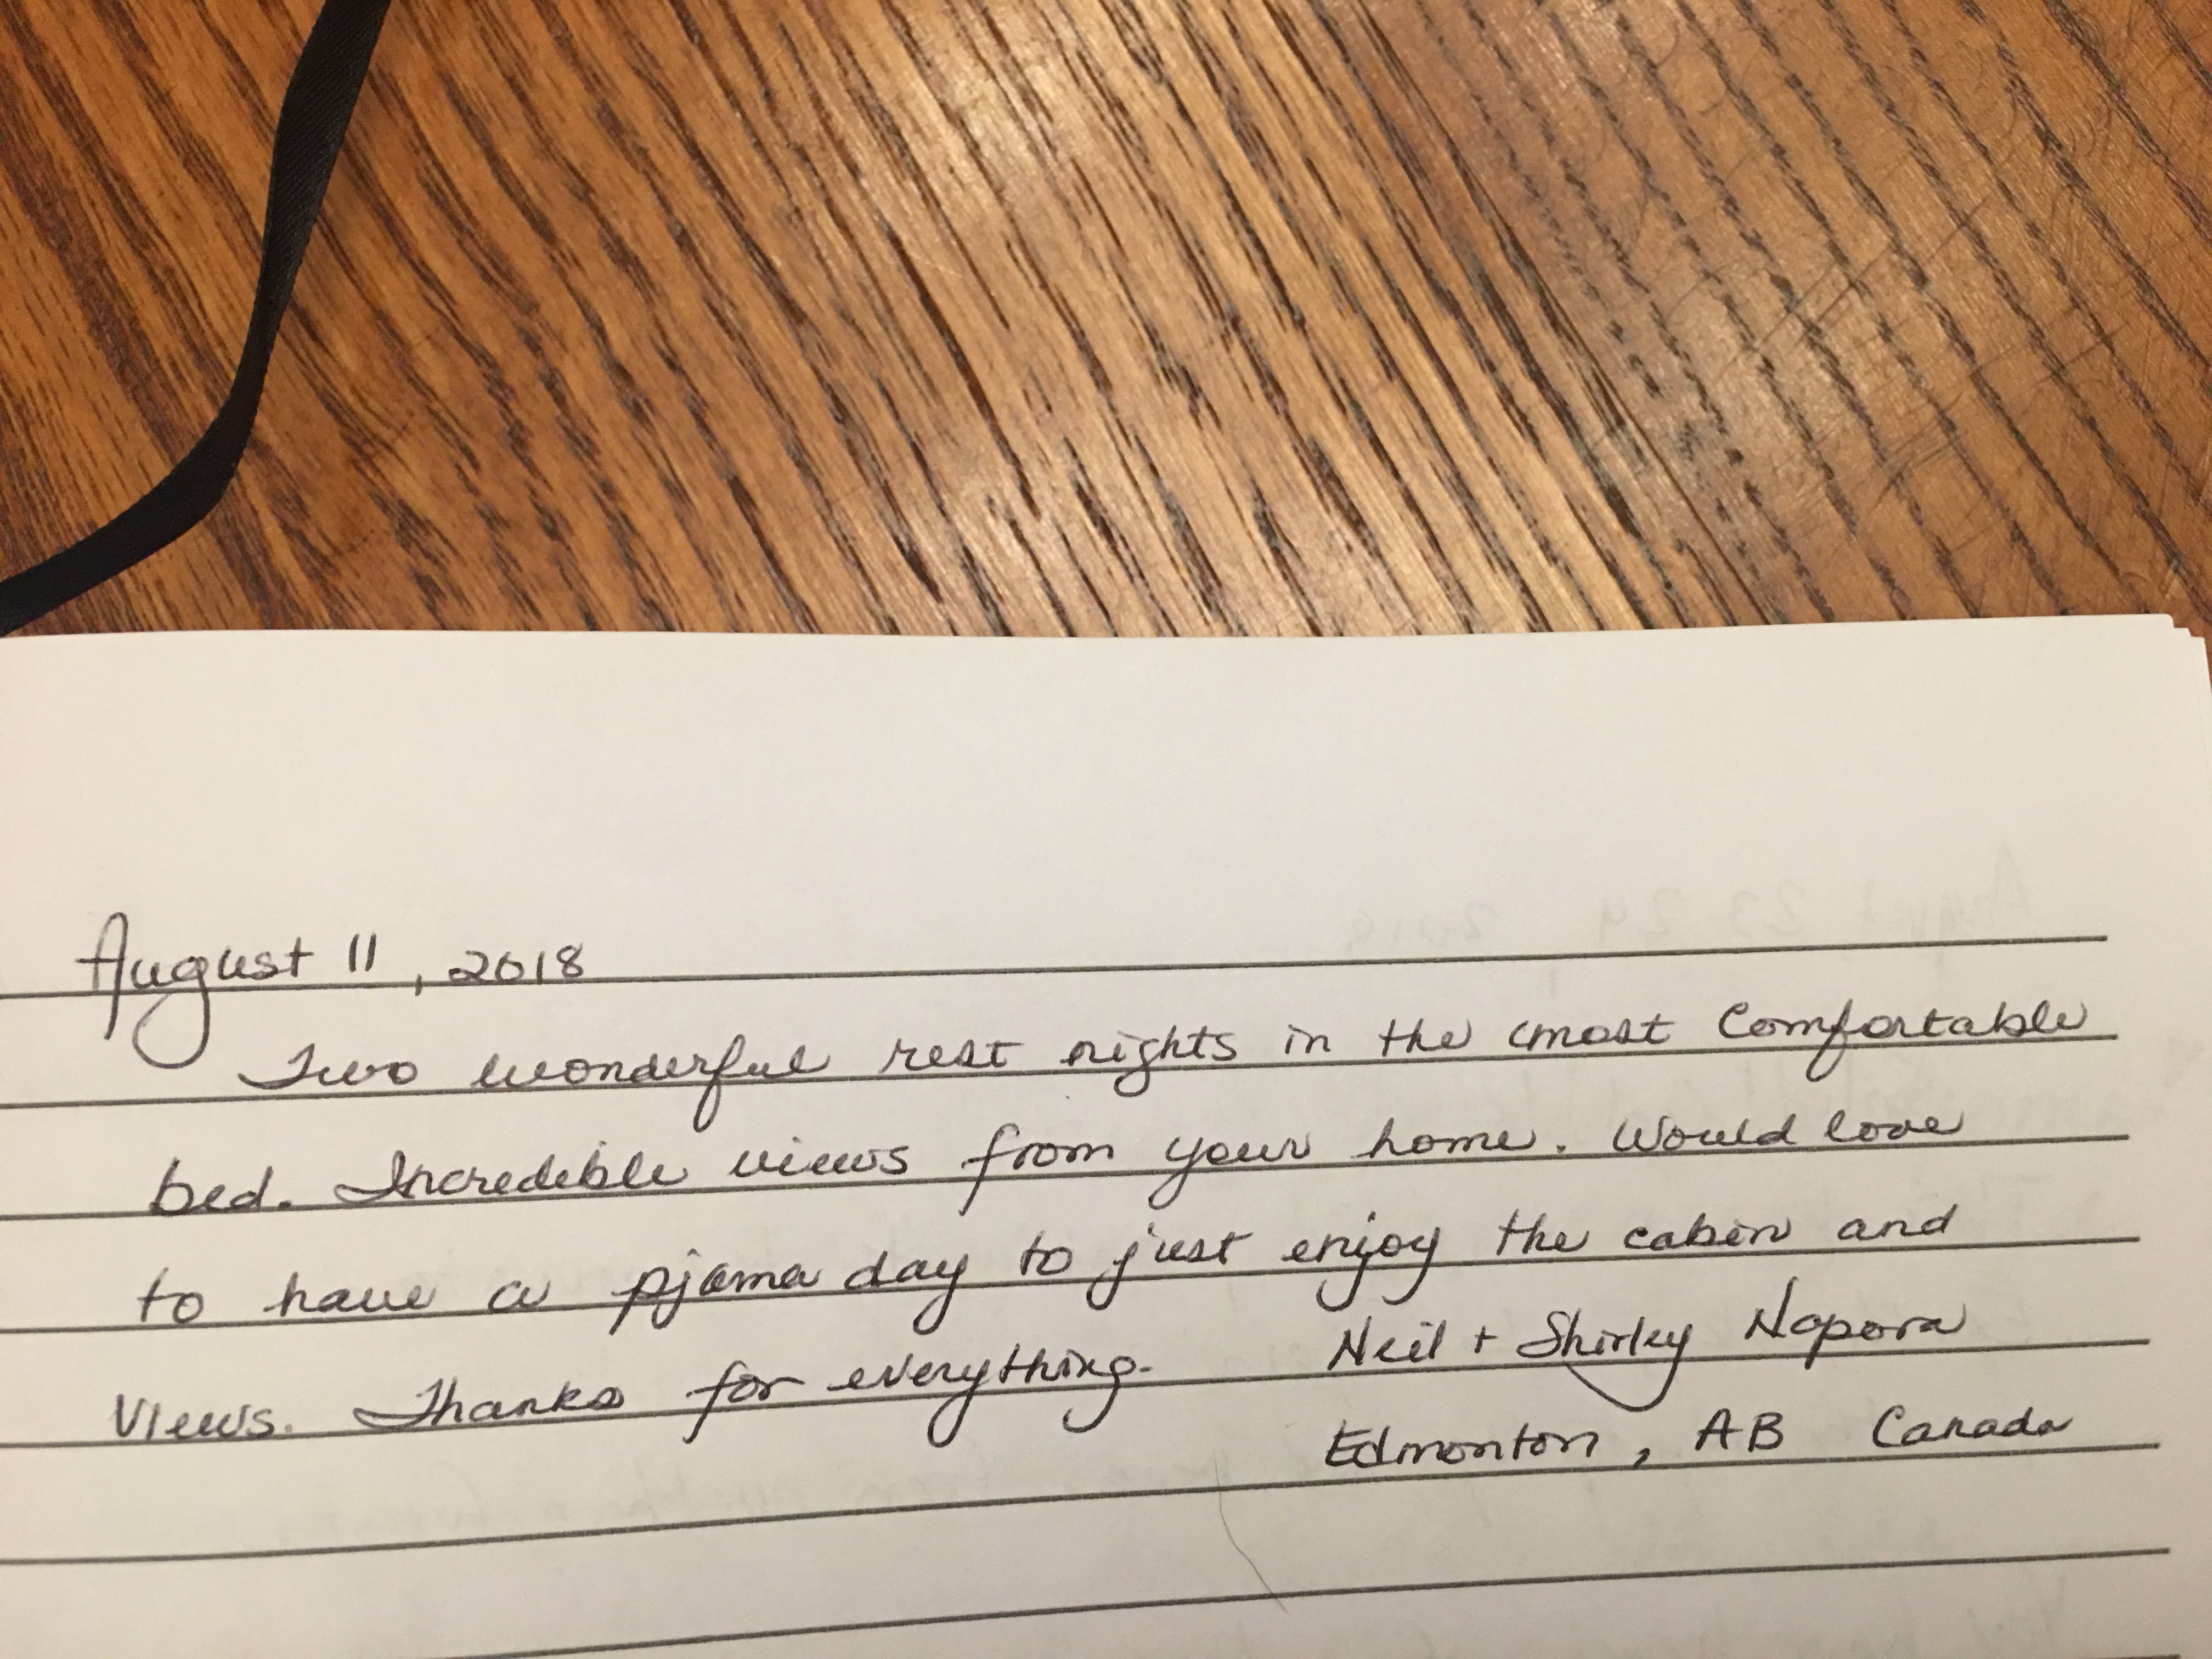 August 11, 2018
Two wonderful rest nights in the most Comfortable
bed. Incredible views from your home. Would love
to have a pjama day to just enjoy the cabin and
views. Thanks for everything. Neil + Shirley Napora
Edmonton, AB Canada